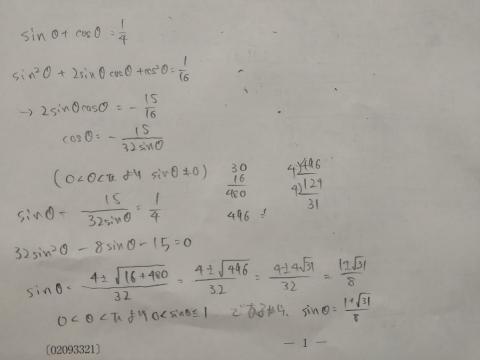 sinθ + cosθ = 1/4
sin²θ + 2sinθcosθ + cos²θ = 1/16
→ 2sinθcosθ = - 15/16
cosθ = - 15/32sinθ
(0<θ<π より sinθ≠0)
sinθ - 15/32sinθ = 1/4
30
16
480
496
4)496
4)124
31
32sin²θ - 8sinθ - 15 = 0
sinθ = 4±√16+480/32 = 4±√496/32 = 4±4√31/32 = 1±√31/8
0<θ<π より 0<sinθ≦1 sinθ = 1+√31/8
(02093321)
— 1 —